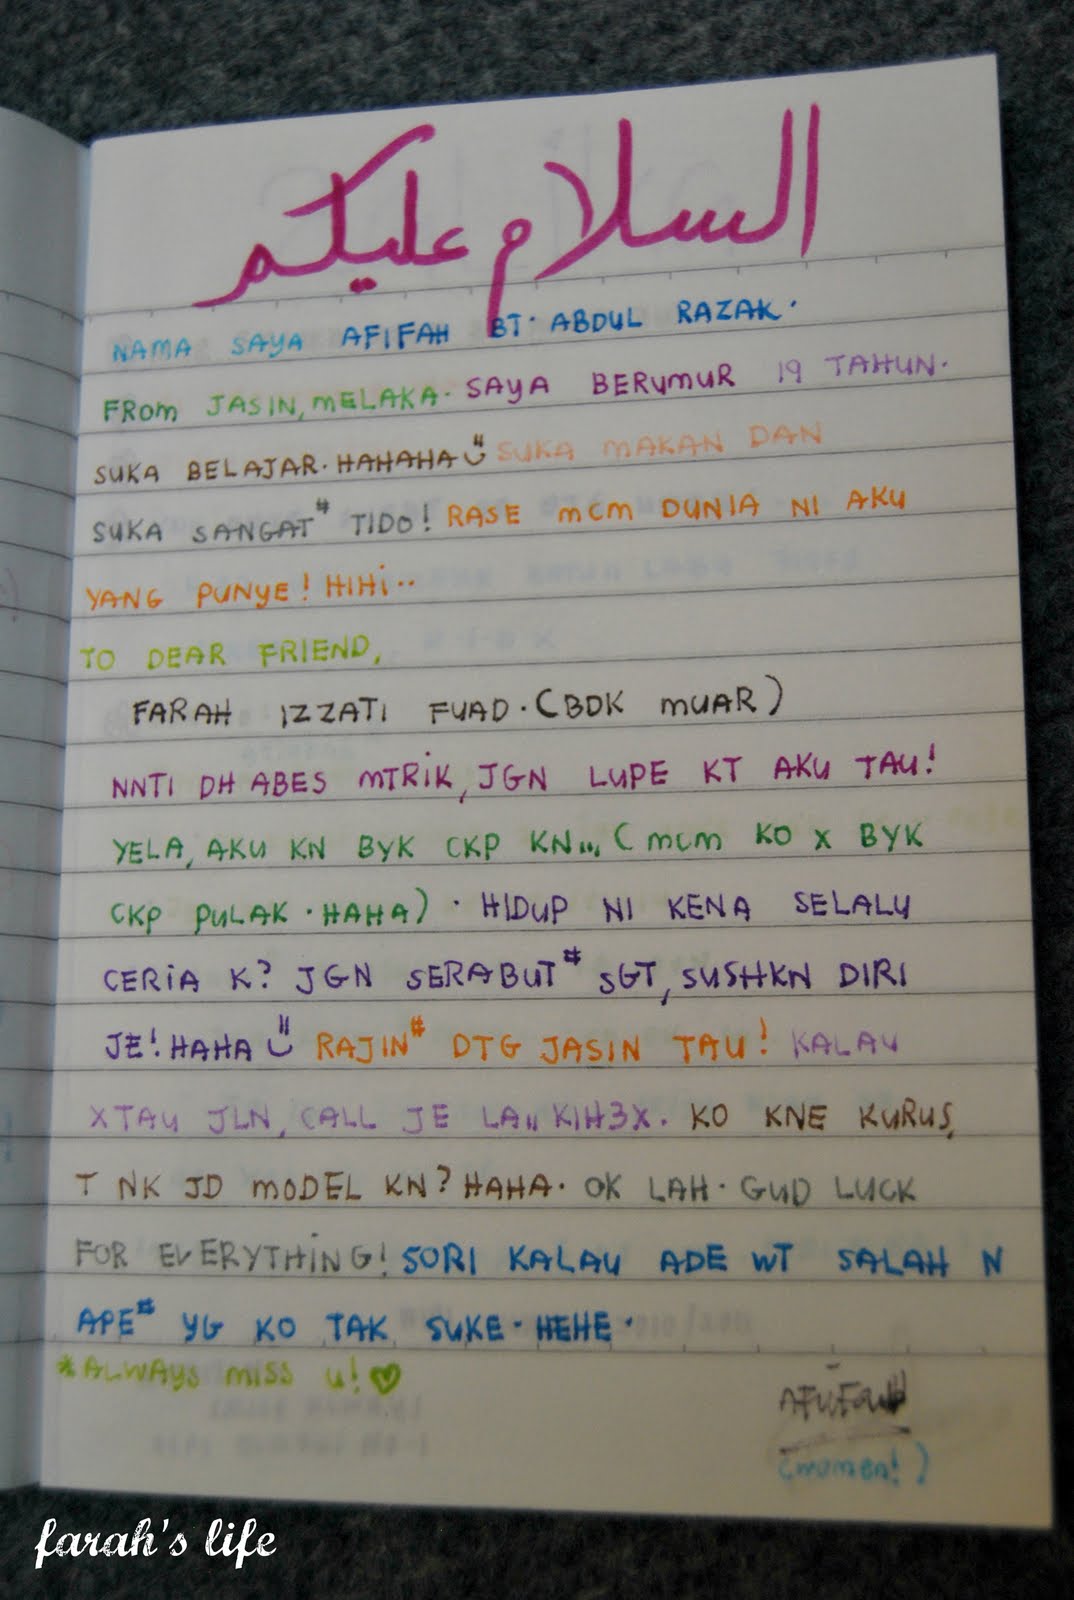 السلام عليكم
NAMA SAYA AFIFAH BT. ABDUL RAZAK.
FROM JASIN, MELAKA. SAYA BERUMUR 19 TAHUN.
SUKA BELAJAR. HAHAHA SUKA MAKAN DAN
SUKA SANGAT# TIDO! RASE MCM DUNIA NI AKU
YANG PUNYE! HIHI..
TO DEAR FRIEND,
FARAH IZZATI FUAD. (BDK MUAR)
NNTI DH ABES MTRIK, JGN LUPE KT AKU TAU!
YELA, AKU KN BYK CKP KN,,, (MCM KO X BYK
CKP PULAK. HAHA). HIDUP NI KENA SELALU
CERIA K? JGN SERABUT# SGT, SUSHKN DIRI
JE! HAHA RAJIN# DTG JASIN TAU! KALAU
XTAU JLN, CALL JE LA,, KIH3X. KO KNE KURUS,
T NK JD MODEL KN? HAHA. OK LAH. GUD LUCK
FOR EVERYTHING! SORI KALAU ADE WT SALAH N
APE# YG KO TAK SUKE. HEHE.
*ALWAYS MISS U! ♡
(momen!)
farah's life